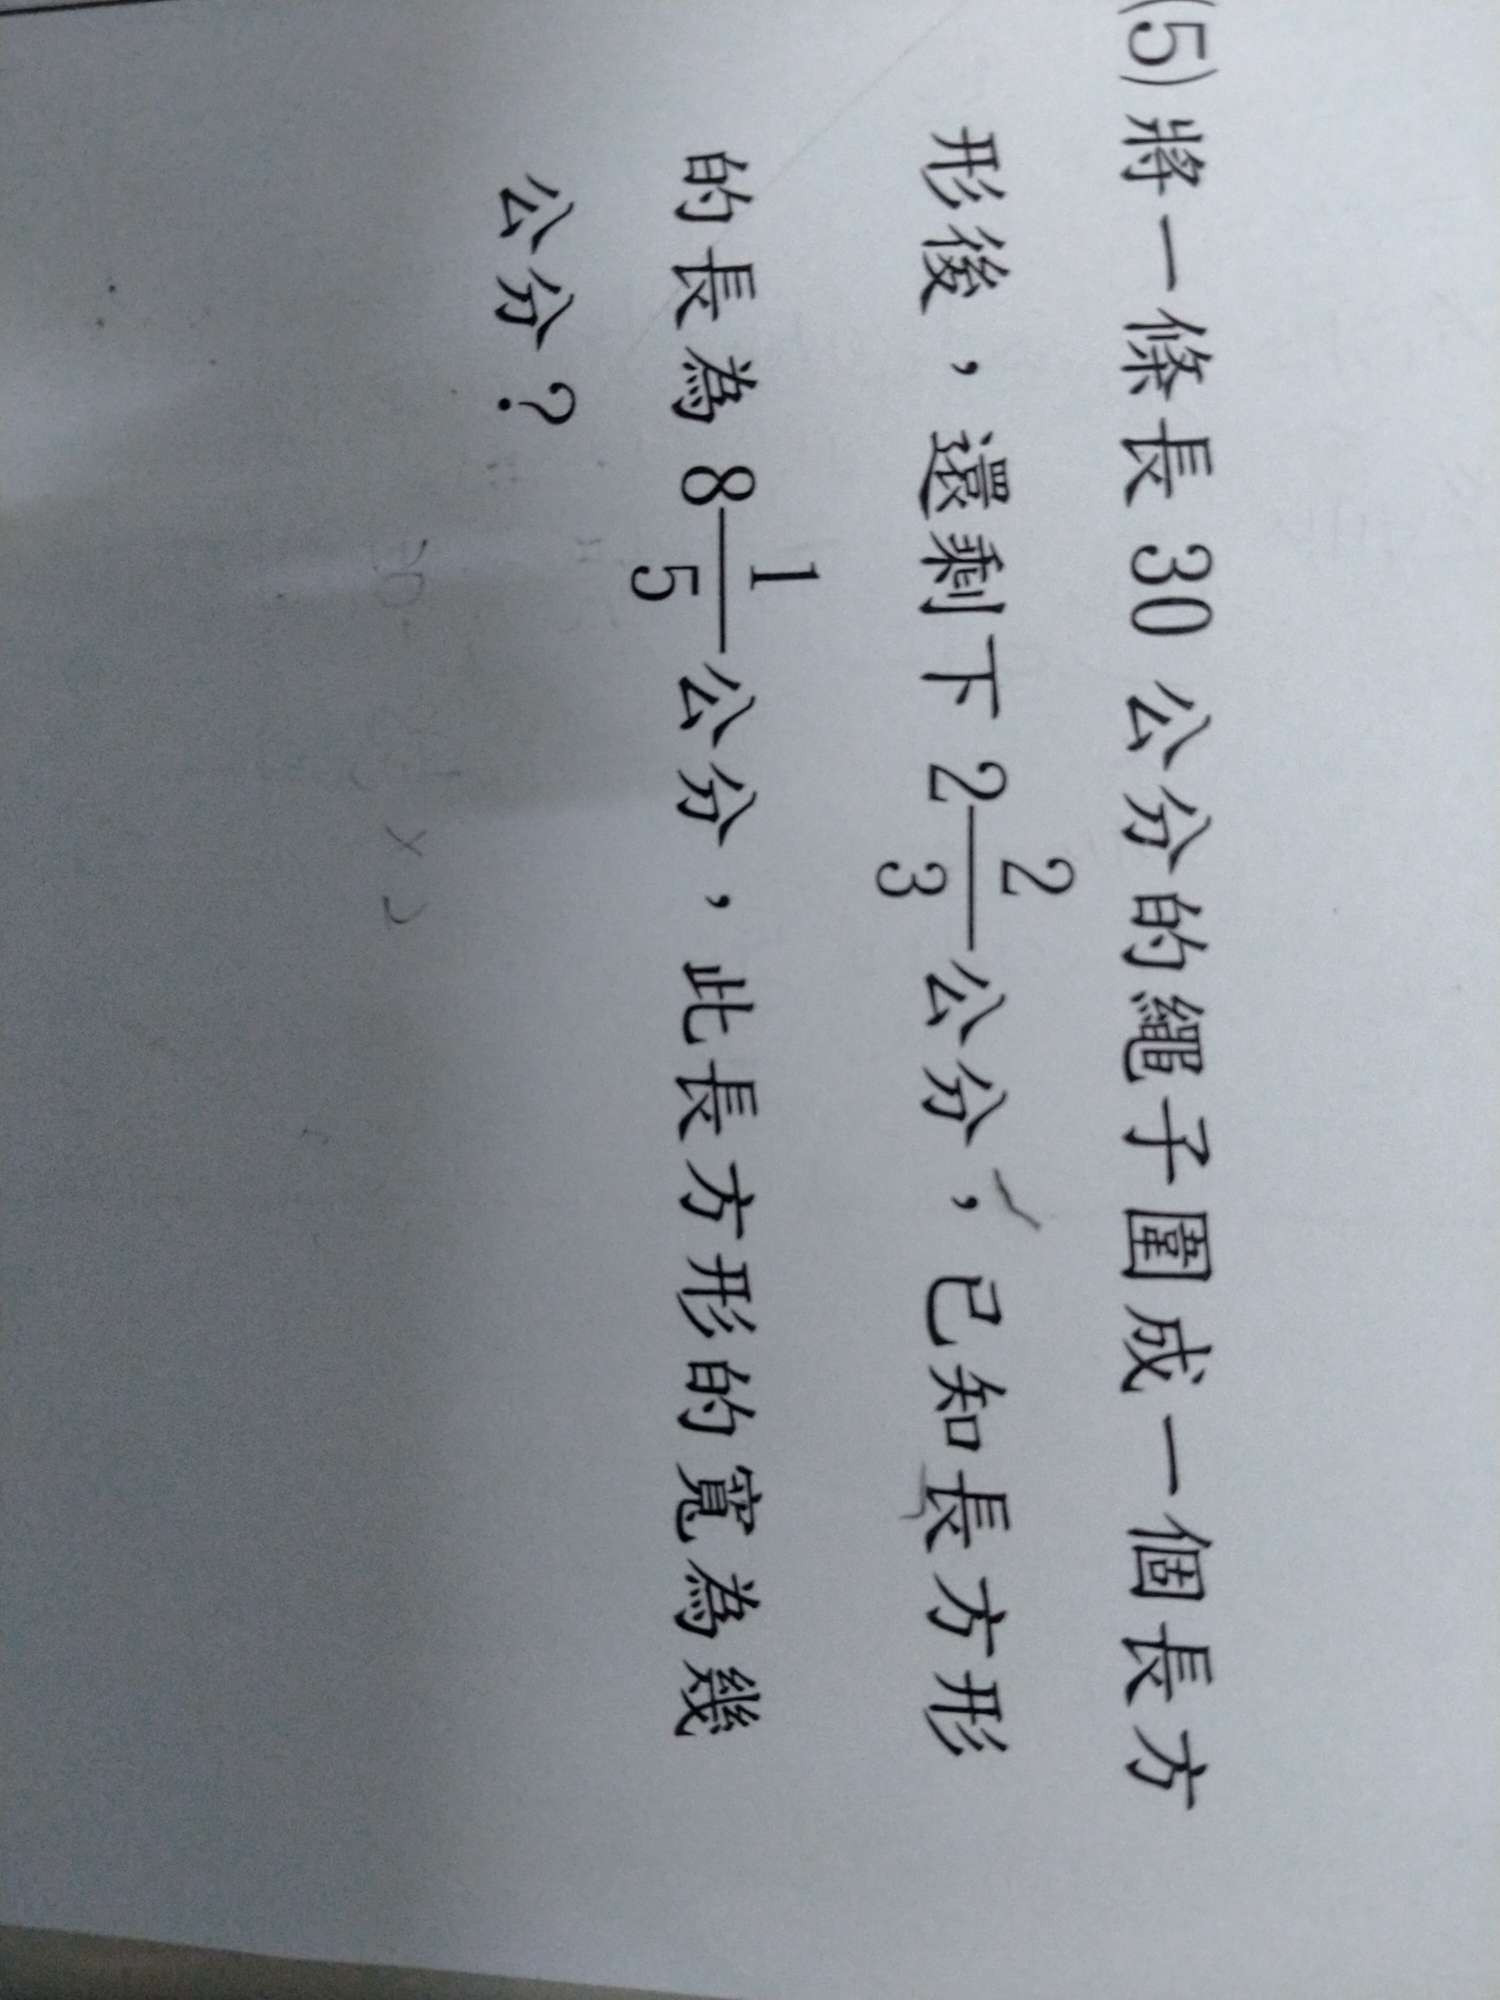 (5) 將一條長 30 公分的繩子圍成一個長方
形後，還剩下 2 2/3 公分，已知長方形
的長為 8 1/5 公分，此長方形的寬為幾
公分？